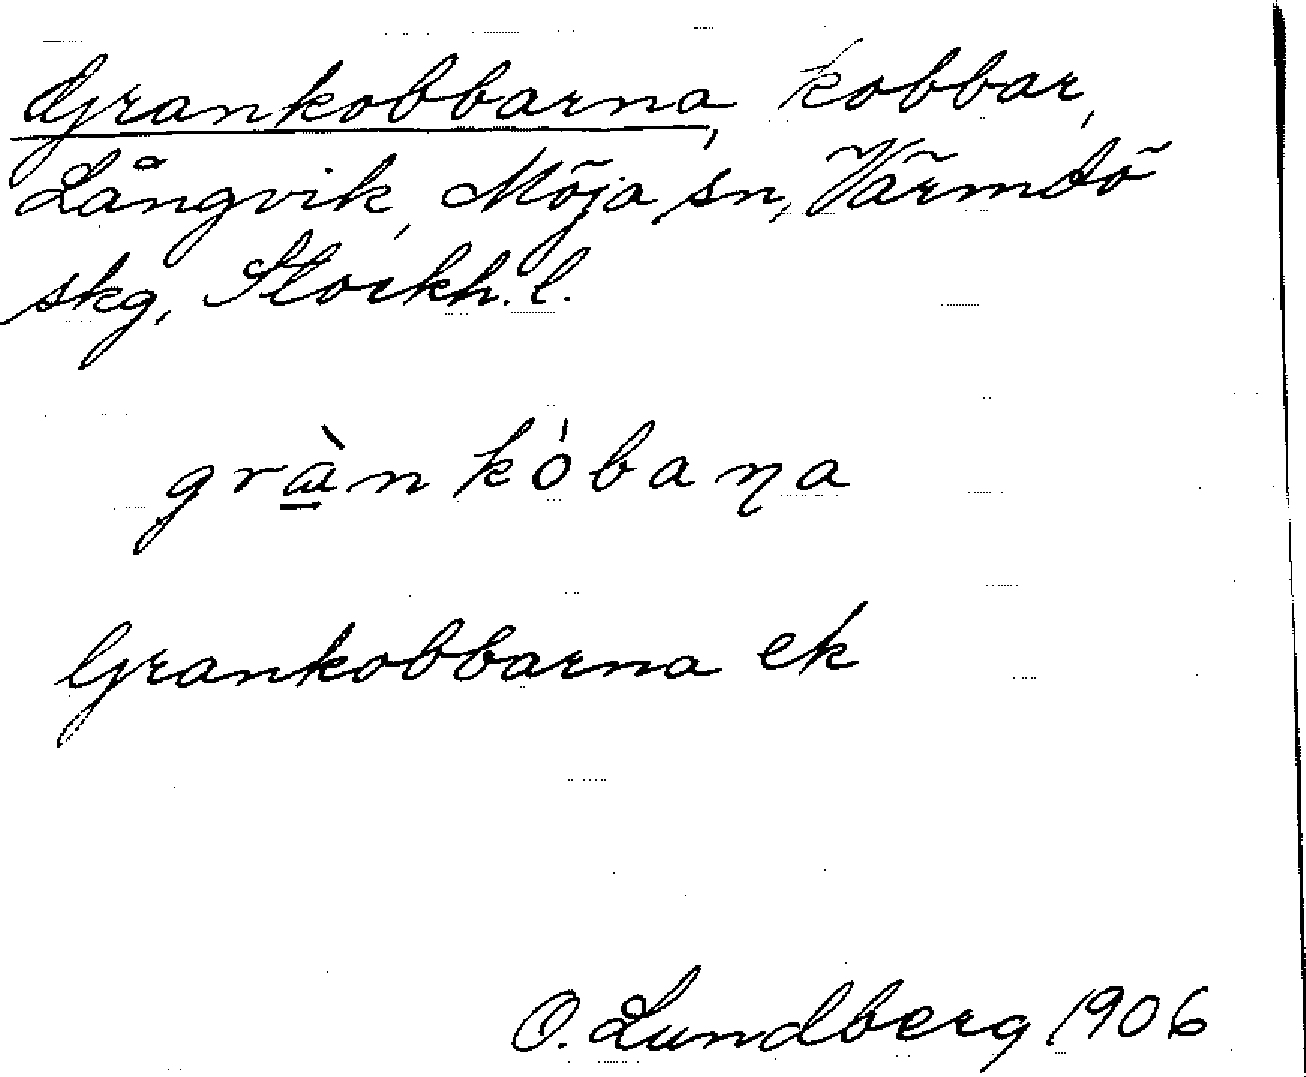 Grankobbarna, kobbar,
Långvik, Möja sn, Värmdö
skg, Stockh. l.
grɑ̀n kȯ́baṇa
Grankobbarna ek
O. Lundberg 1906